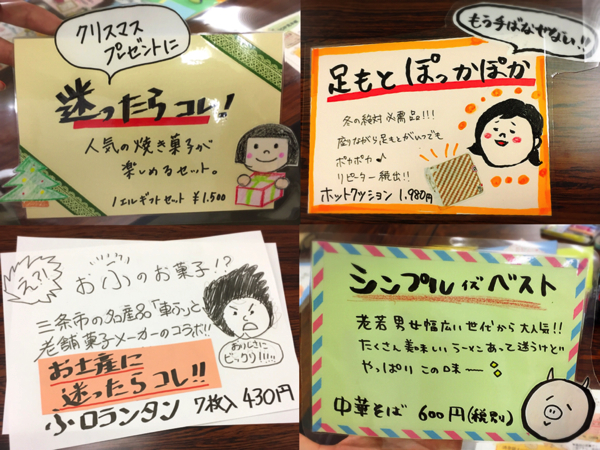 クリスマス
プレゼントに
迷ったらコレ!
人気の焼き菓子が
楽しめるセット。
ノエルギフトセット ¥1,500
もう手ばなせない!!
足もとぽっかぽか
冬の絶対必需品!!!
座りながら足もとがいつでも
ポカポカ♪
リピーター続出!!
ホットクッション 1,980円
え?!
おふのお菓子!?
三条市の名産品「車ふ」と
老舗菓子メーカーのコラボ!!
おいしさに
ビックリ!!!!
お土産に
迷ったらコレ!!
ふロランタン 7枚入 430円
シンプルイズベスト
老若男女幅広い世代から大人気!!
たくさん美味しいラーメンあって迷うけど
やっぱりこの味〜
中華そば 600円(税別)